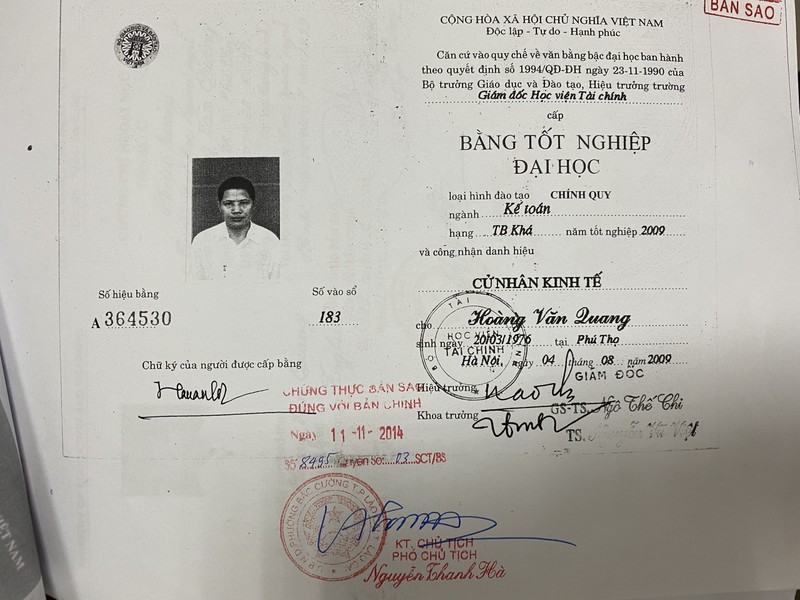 BẢN SAO
CỘNG HÒA XÃ HỘI CHỦ NGHĨA VIỆT NAM
Độc lập - Tự do - Hạnh phúc
Căn cứ vào quy chế về văn bằng bậc đại học ban hành
theo quyết định số 1994/QĐ-ĐH ngày 23-11-1990 của
Bộ trưởng Giáo dục và Đào tạo, Hiệu trưởng trường
Giám đốc Học viện Tài chính
cấp
BẰNG TỐT NGHIỆP
ĐẠI HỌC
loại hình đào tạo CHÍNH QUY
ngành Kế toán
hạng TB Khá năm tốt nghiệp 2009
và công nhận danh hiệu
CỬ NHÂN KINH TẾ
cho Hoàng Văn Quang
sinh ngày 20/03/1976 tại Phú Thọ
Hà Nội, ngày 04 tháng 08 năm 2009
HỌC VIỆN
TÀI CHÍNH
Hiệu trưởng GIÁM ĐỐC
GS-TS. Ngô Thế Chi
Khoa trưởng
TS.
Số hiệu bằng Số vào sổ
A 364530 183
Chữ ký của người được cấp bằng
CHỨNG THỰC BẢN SAO
ĐÚNG VỚI BẢN CHÍNH
Ngày 11-11-2014
Số 8495 Quyển số: 03 SCT/BS
KT. CHỦ TỊCH
PHÓ CHỦ TỊCH
Nguyễn Thanh Hà
VIỆT NAM